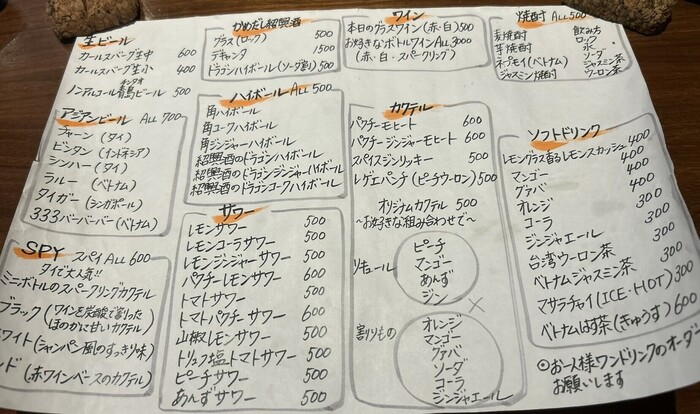 生ビール
カールスバーグ生中 600
カールスバーグ生小 400
ノンアルコール青島ビール 500
チンタオ
アジアンビール ALL 700
チャーン (タイ)
ビンタン (インドネシア)
シンハー (タイ)
ラルー (ベトナム)
タイガー (シンガポール)
333バーバーバー(ベトナム)
SPY スパイ ALL 600
タイで大人気!!
ミニボトルのスパークリングカクテル
ブラック (ワインを炭酸で割った
ほのかに甘いカクテル)
ワイト(シャンパン風のすっきり味)
ド (赤ワインベースのカクテル)
かめだし紹興酒
グラス(ロック) 500
デキャンタ 1500
ドラゴンハイボール(ソーダ割) 500
ハイボール ALL 500
角ハイボール
角コークハイボール
角ジンジャーハイボール
紹興酒のドラゴンハイボール
紹興酒のドラゴンジンジャーハイボール
紹興酒のドラゴンコークハイボール
サワー
レモンサワー 500
レモンコーラサワー 500
レモンジンジャーサワー 500
パクチーレモンサワー 600
トマトサワー 500
トマトパクチーサワー 600
山椒レモンサワー 500
トリュフ塩トマトサワー 500
ピーチサワー 500
あんずサワー 500
ワイン
本日のグラスワイン(赤・白) 500
お好きなボトルワイン ALL 3000
(赤・白・スパークリング)
カクテル
パクチーモヒート 600
パクチージンジャーモヒート 600
スパイスジンリッキー 500
レゲエパンチ(ピーチウーロン) 500
オリジナルカクテル 500
~お好きな組み合わせで~
リキュール
ピーチ
マンゴー
あんず
ジン
×
割りもの
オレンジ
マンゴー
グァバ
ソーダ
コーラ
ジンジャエール
焼酎 ALL 500
麦焼酎
芋焼酎
ネプモイ(ベトナム)
ジャスミン焼酎
飲み方
ロック
水
ソーダ
ジャスミン茶
ウーロン茶
ソフトドリンク
レモングラス香るレモンスカッシュ 400
マンゴー 400
グァバ 400
オレンジ 400
コーラ 300
ジンジャエール 300
台湾ウーロン茶 300
ベトナムジャスミン茶 300
マサラチャイ(ICE・HOT) 300
ベトナムはす茶(きゅうす) 600
◎お一人様ワンドリンクのオーダー
お願いします